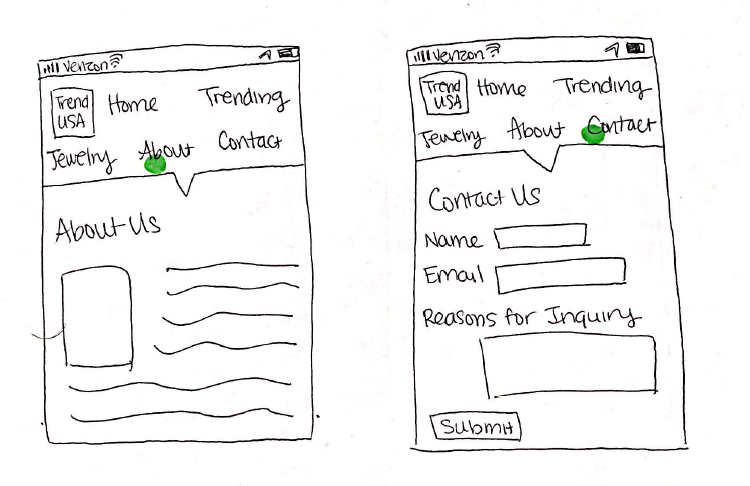 Verizon
Trend USA
Home
Trending
Jewelry
About
Contact
About Us
Verizon
Trend USA
Home
Trending
Jewelry
About
Contact
Contact Us
Name
Email
Reasons for Inquiry
Submit